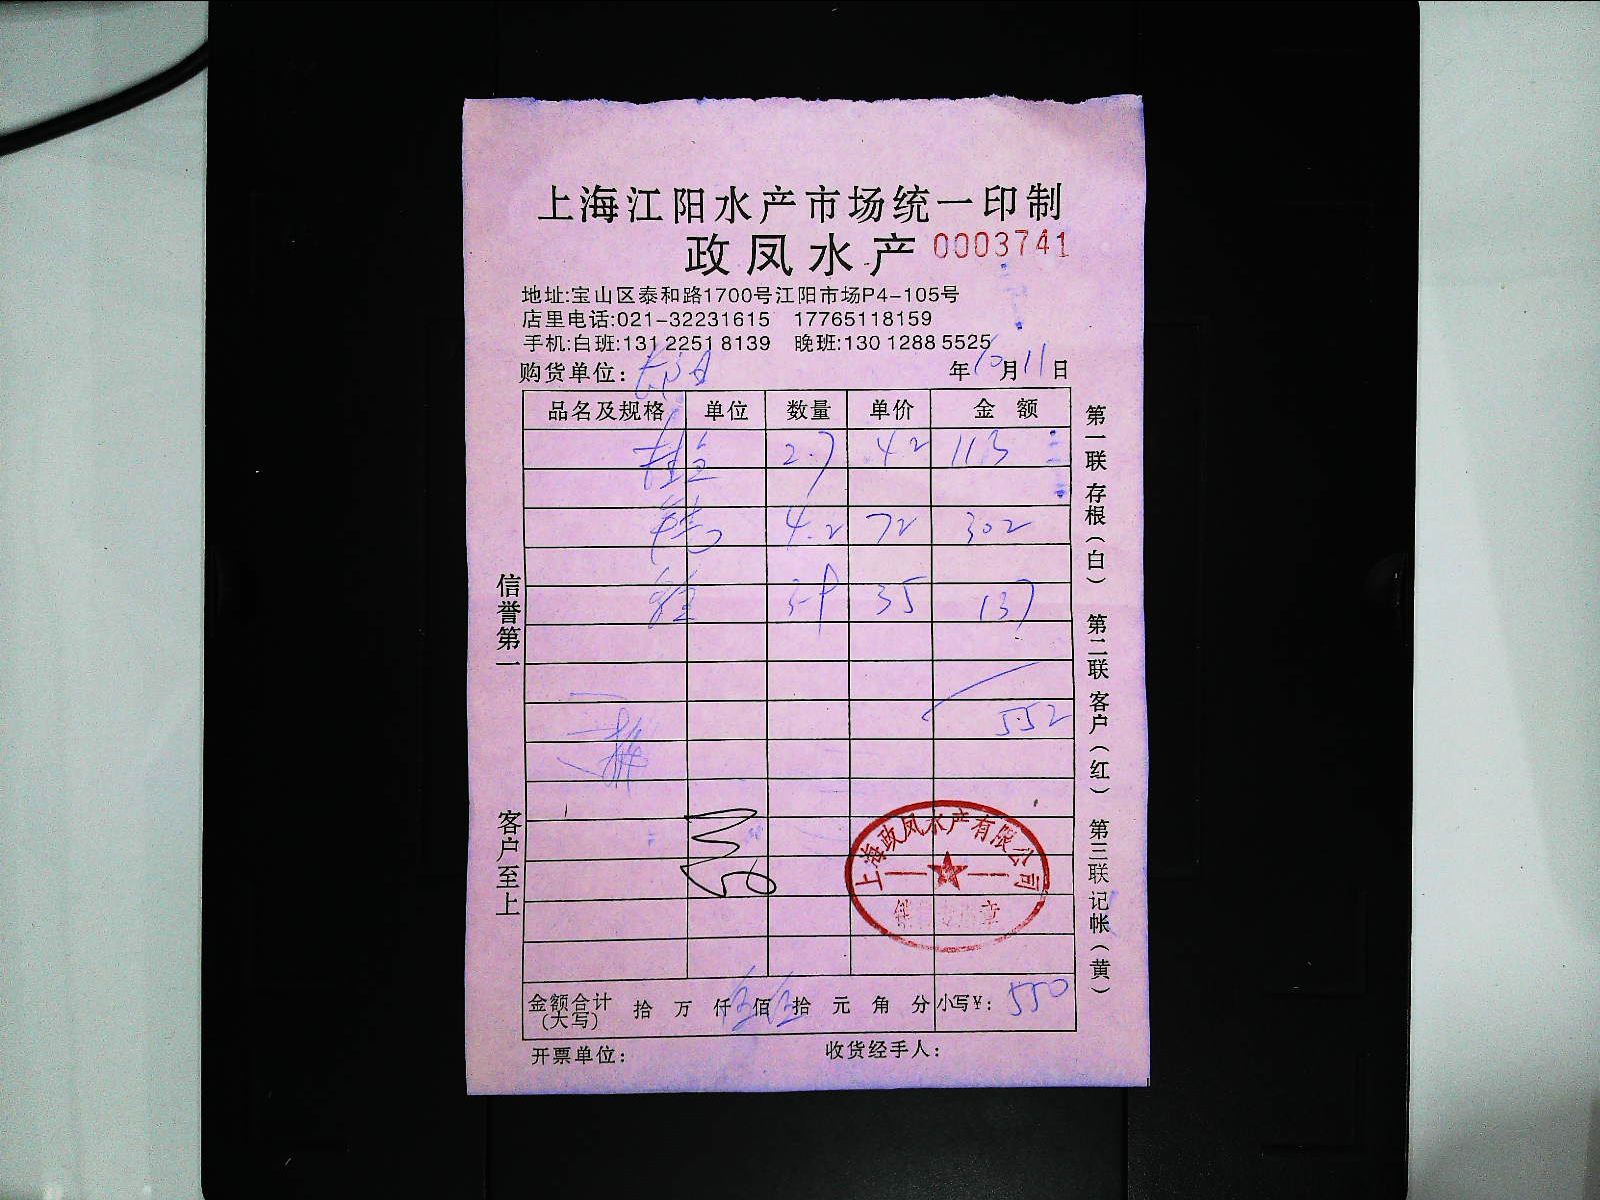 上海江阳水产市场统一印制
政凤水产 0003741
地址:宝山区泰和路1700号江阳市场P4-105号
店里电话:021-32231615 17765118159
手机:白班:131 2251 8139 晚班:130 1288 5525
购货单位: 年10月11日
品名及规格 单位 数量 单价 金额
2.7 42 113
4.2 72 302
35 137
552
信誉第一
客户至上
第一联存根(白) 第二联客户(红) 第三联记帐(黄)
上海政凤水产有限公司
金额合计(大写) 拾 万 仟伍佰伍拾 元 角 分 小写¥: 550
开票单位: 收货经手人: